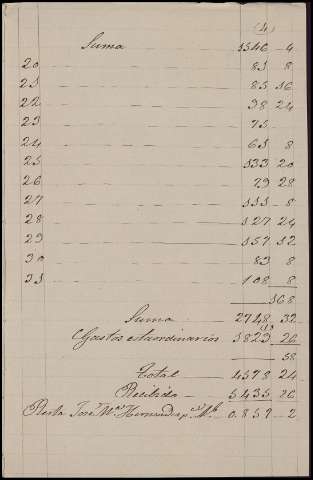 (4)
Suma 1546 - 4
20 81 8
21 85 16
22 98 24
23 75 -
24 61 8
25 133 20
26 79 28
27 111 - 8
28 127 24
29 157 12
30 83 8
31 108 8
168
Suma 2748 32
Gastos estraordinarios 1829 26
58
Total 4578 24
Recibido 5435 26
Resta José Ma Hernandez 0.857 - 2